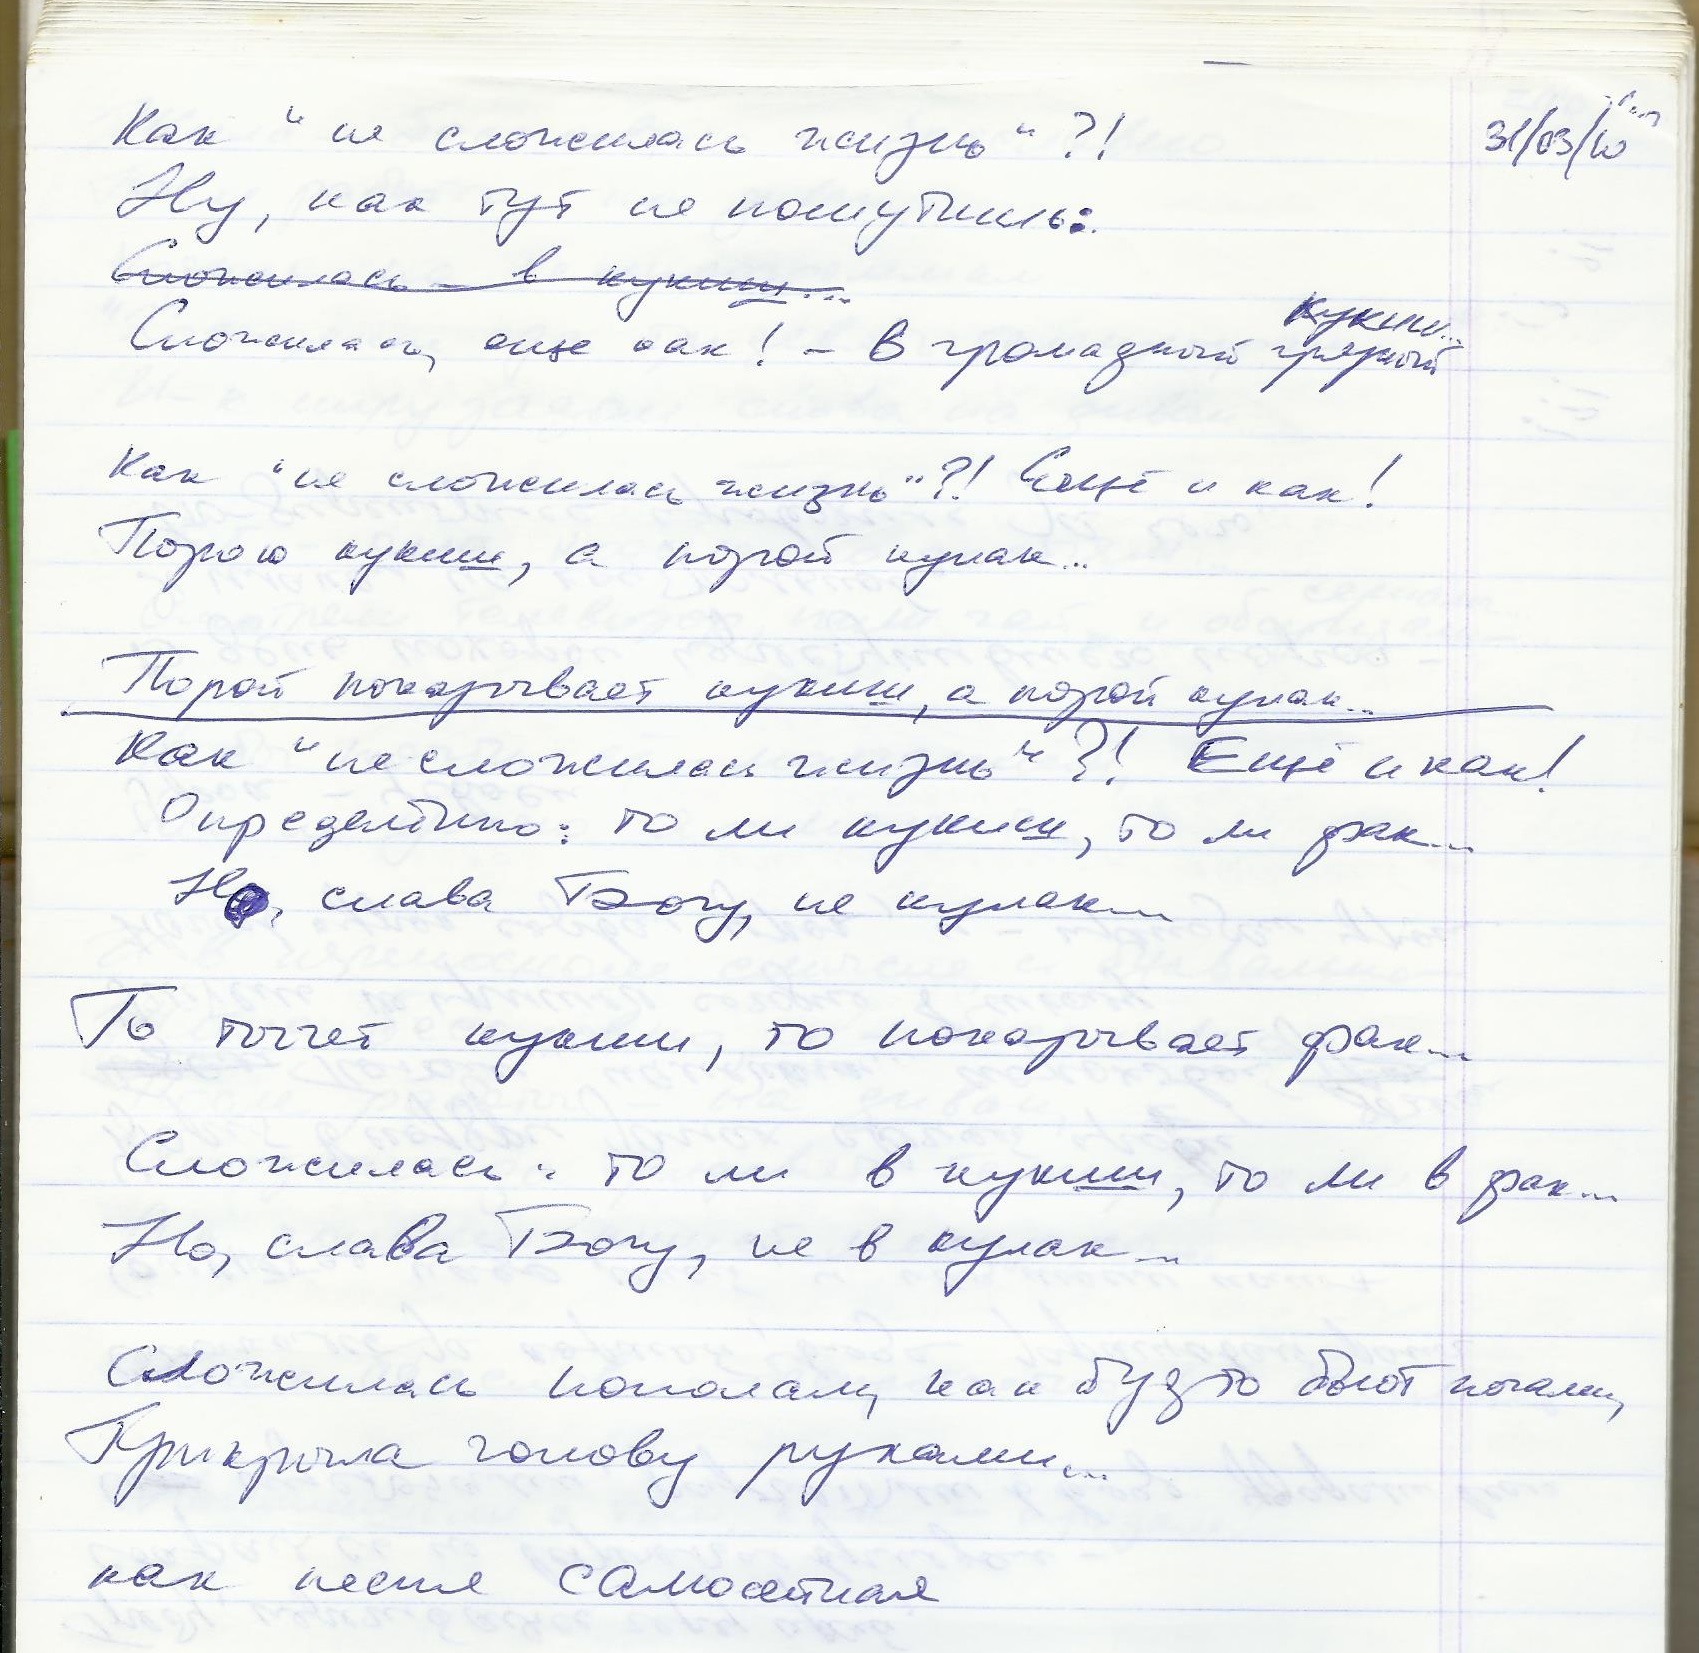 31/03/10
Как "не сложилась жизнь"?!
Ну, как тут не пошутишь:
Сложилась – в кукиш...
Сложилась, еще как! – В громадный грязный кукиш...
Как "не сложилась жизнь"?! Ещё и как!
Порою кукиш, а порой кулак...
Порой показывает кукиш, а порой кулак...
Как "не сложилась жизнь"?! Ещё и как!
Определённо: то ли кукиш, то ли фак...
Но, слава Богу, не кулак...
То тычет кукиш, то показывает фак...
Сложилась: то ли в кукиш, то ли в фак...
Но, слава Богу, не в кулак...
Сложилась пополам, как будто бьют ногами,
Прикрыла голову руками...
как песня самолётная